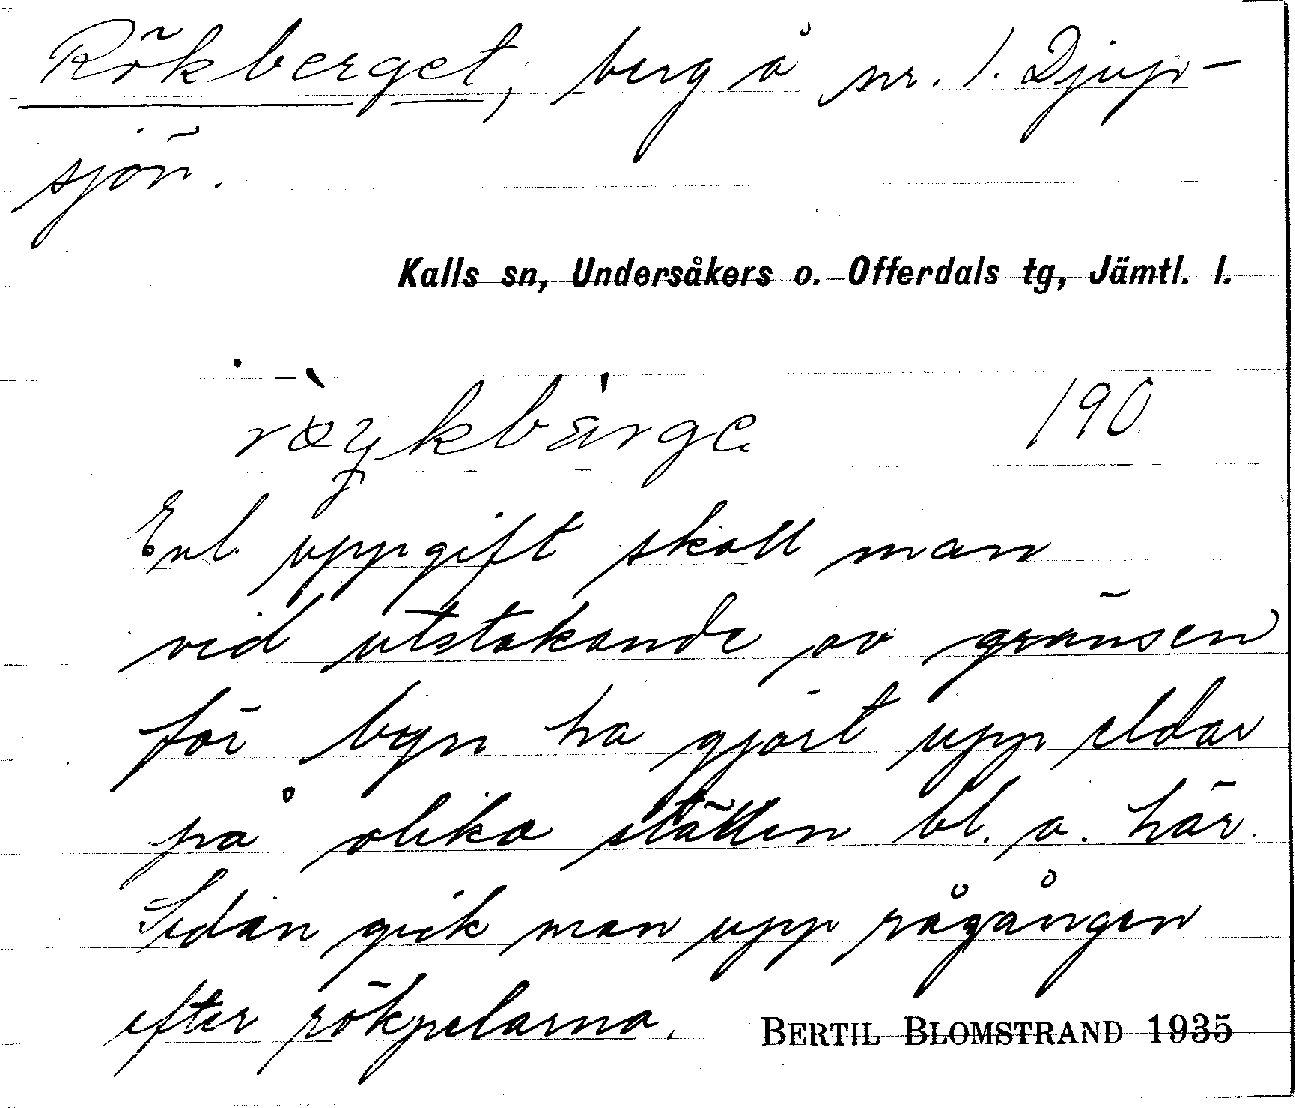 Rökberget, berg å nr. 1. Djup-
sjön.
Kalls sn, Undersåkers o. Offerdals tg, Jämtl. l.
ròykbärge 190
Enl uppgift skall man
vid utstakande av gränsen
för byn ha gjort upp eldar
på olika ställen bl. a. här.
Sedan gick man upp rågången
efter rökpelarna. BERTIL BLOMSTRAND 1935